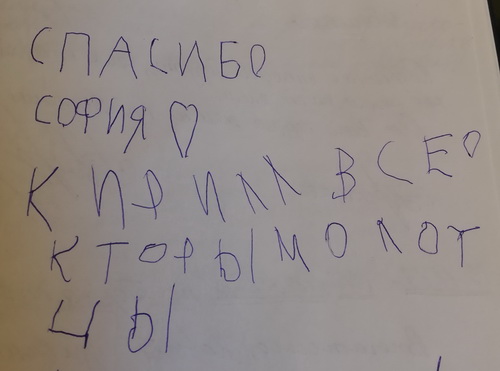 СПАСИБО
СОФИЯ ♡
КИРИЛЛ ВСЕО
КТОРЫ МОЛОТ
ЦЫ